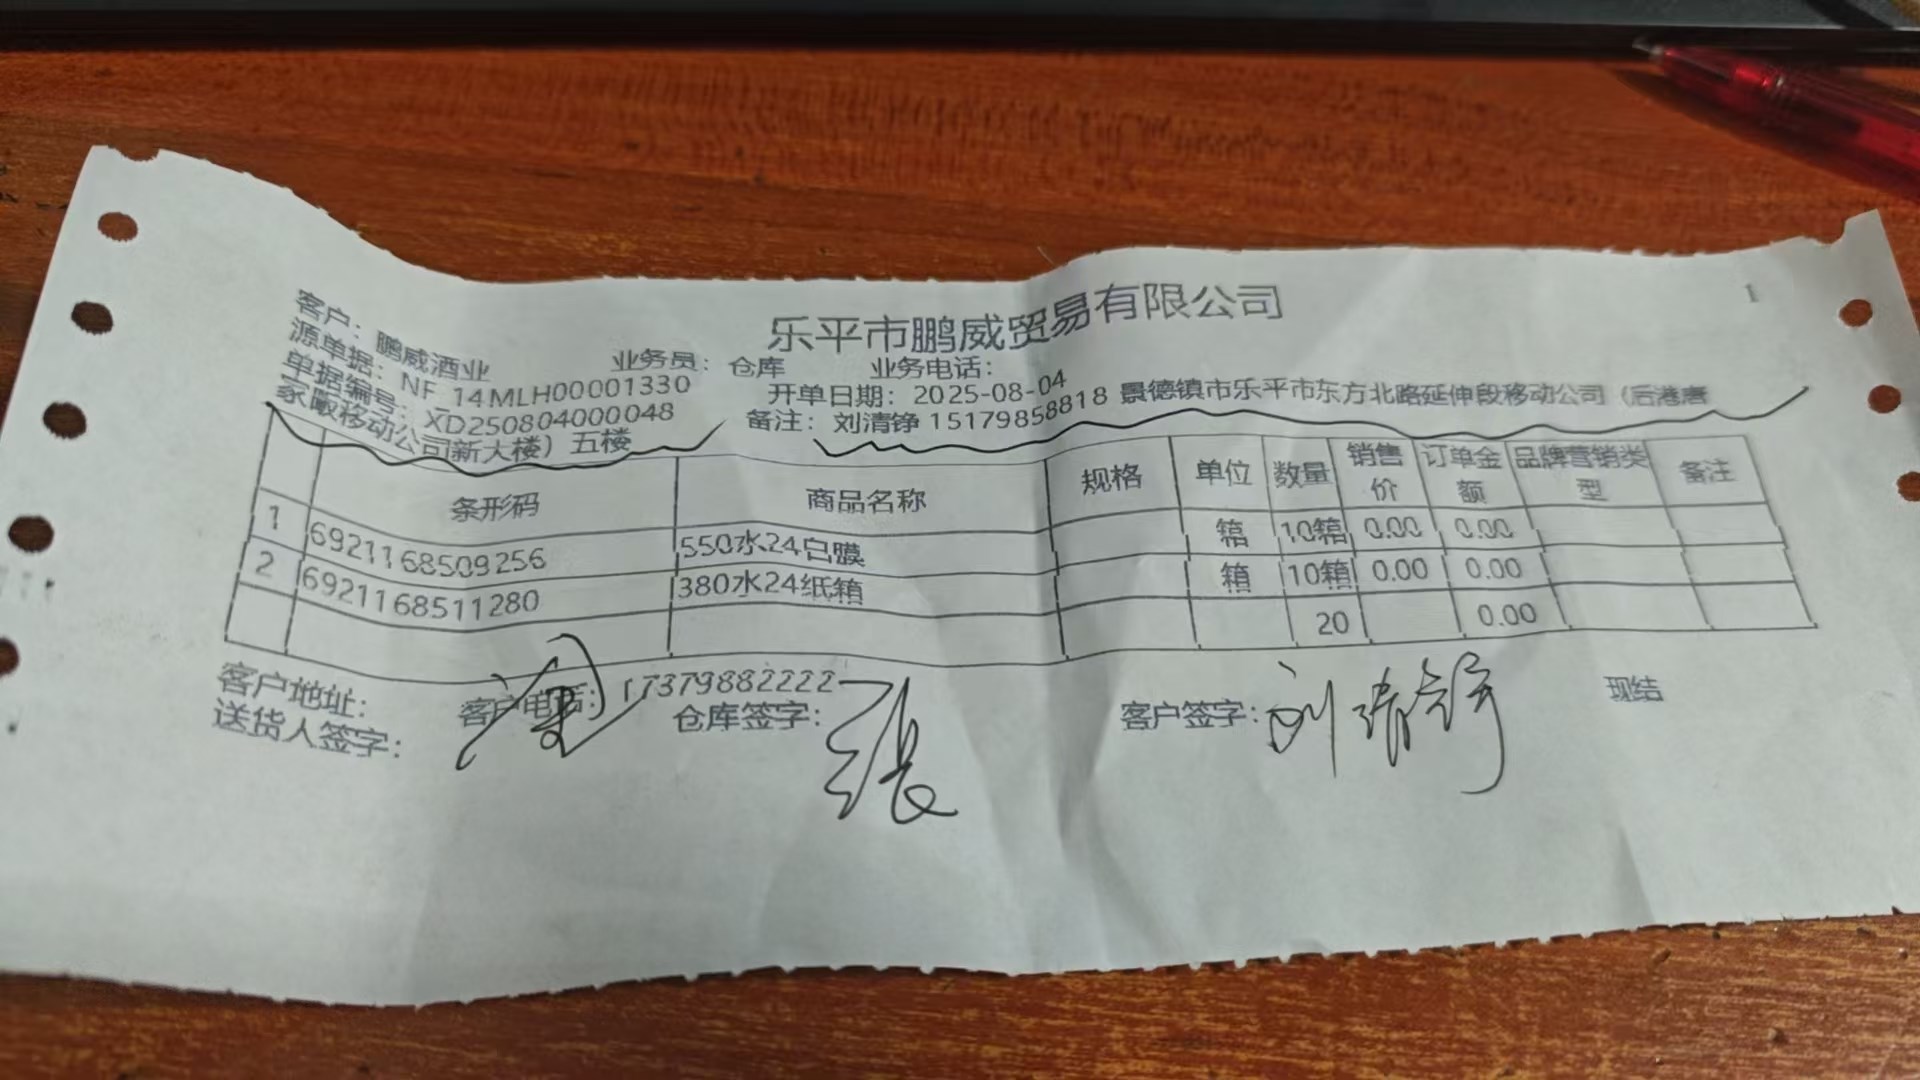 乐平市鹏威贸易有限公司
1
客户：鹏威酒业 业务员：仓库 业务电话：
源单据：NF_14MLH00001330 开单日期：2025-08-04
单据编号：XD250804000048 备注：刘清铮 15179858818 景德镇市乐平市东方北路延伸段移动公司（后港唐
家畈移动公司新大楼）五楼
条形码 商品名称 规格 单位 数量 销售价 订单金额 品牌营销类型 备注
1 6921168509256 550水24白膜 箱 10箱 0.00 0.00
2 6921168511280 380水24纸箱 箱 10箱 0.00 0.00
20 0.00
客户地址： 客户电话：17379882222 现结
送货人签字： 仓库签字：张 客户签字：刘清铮